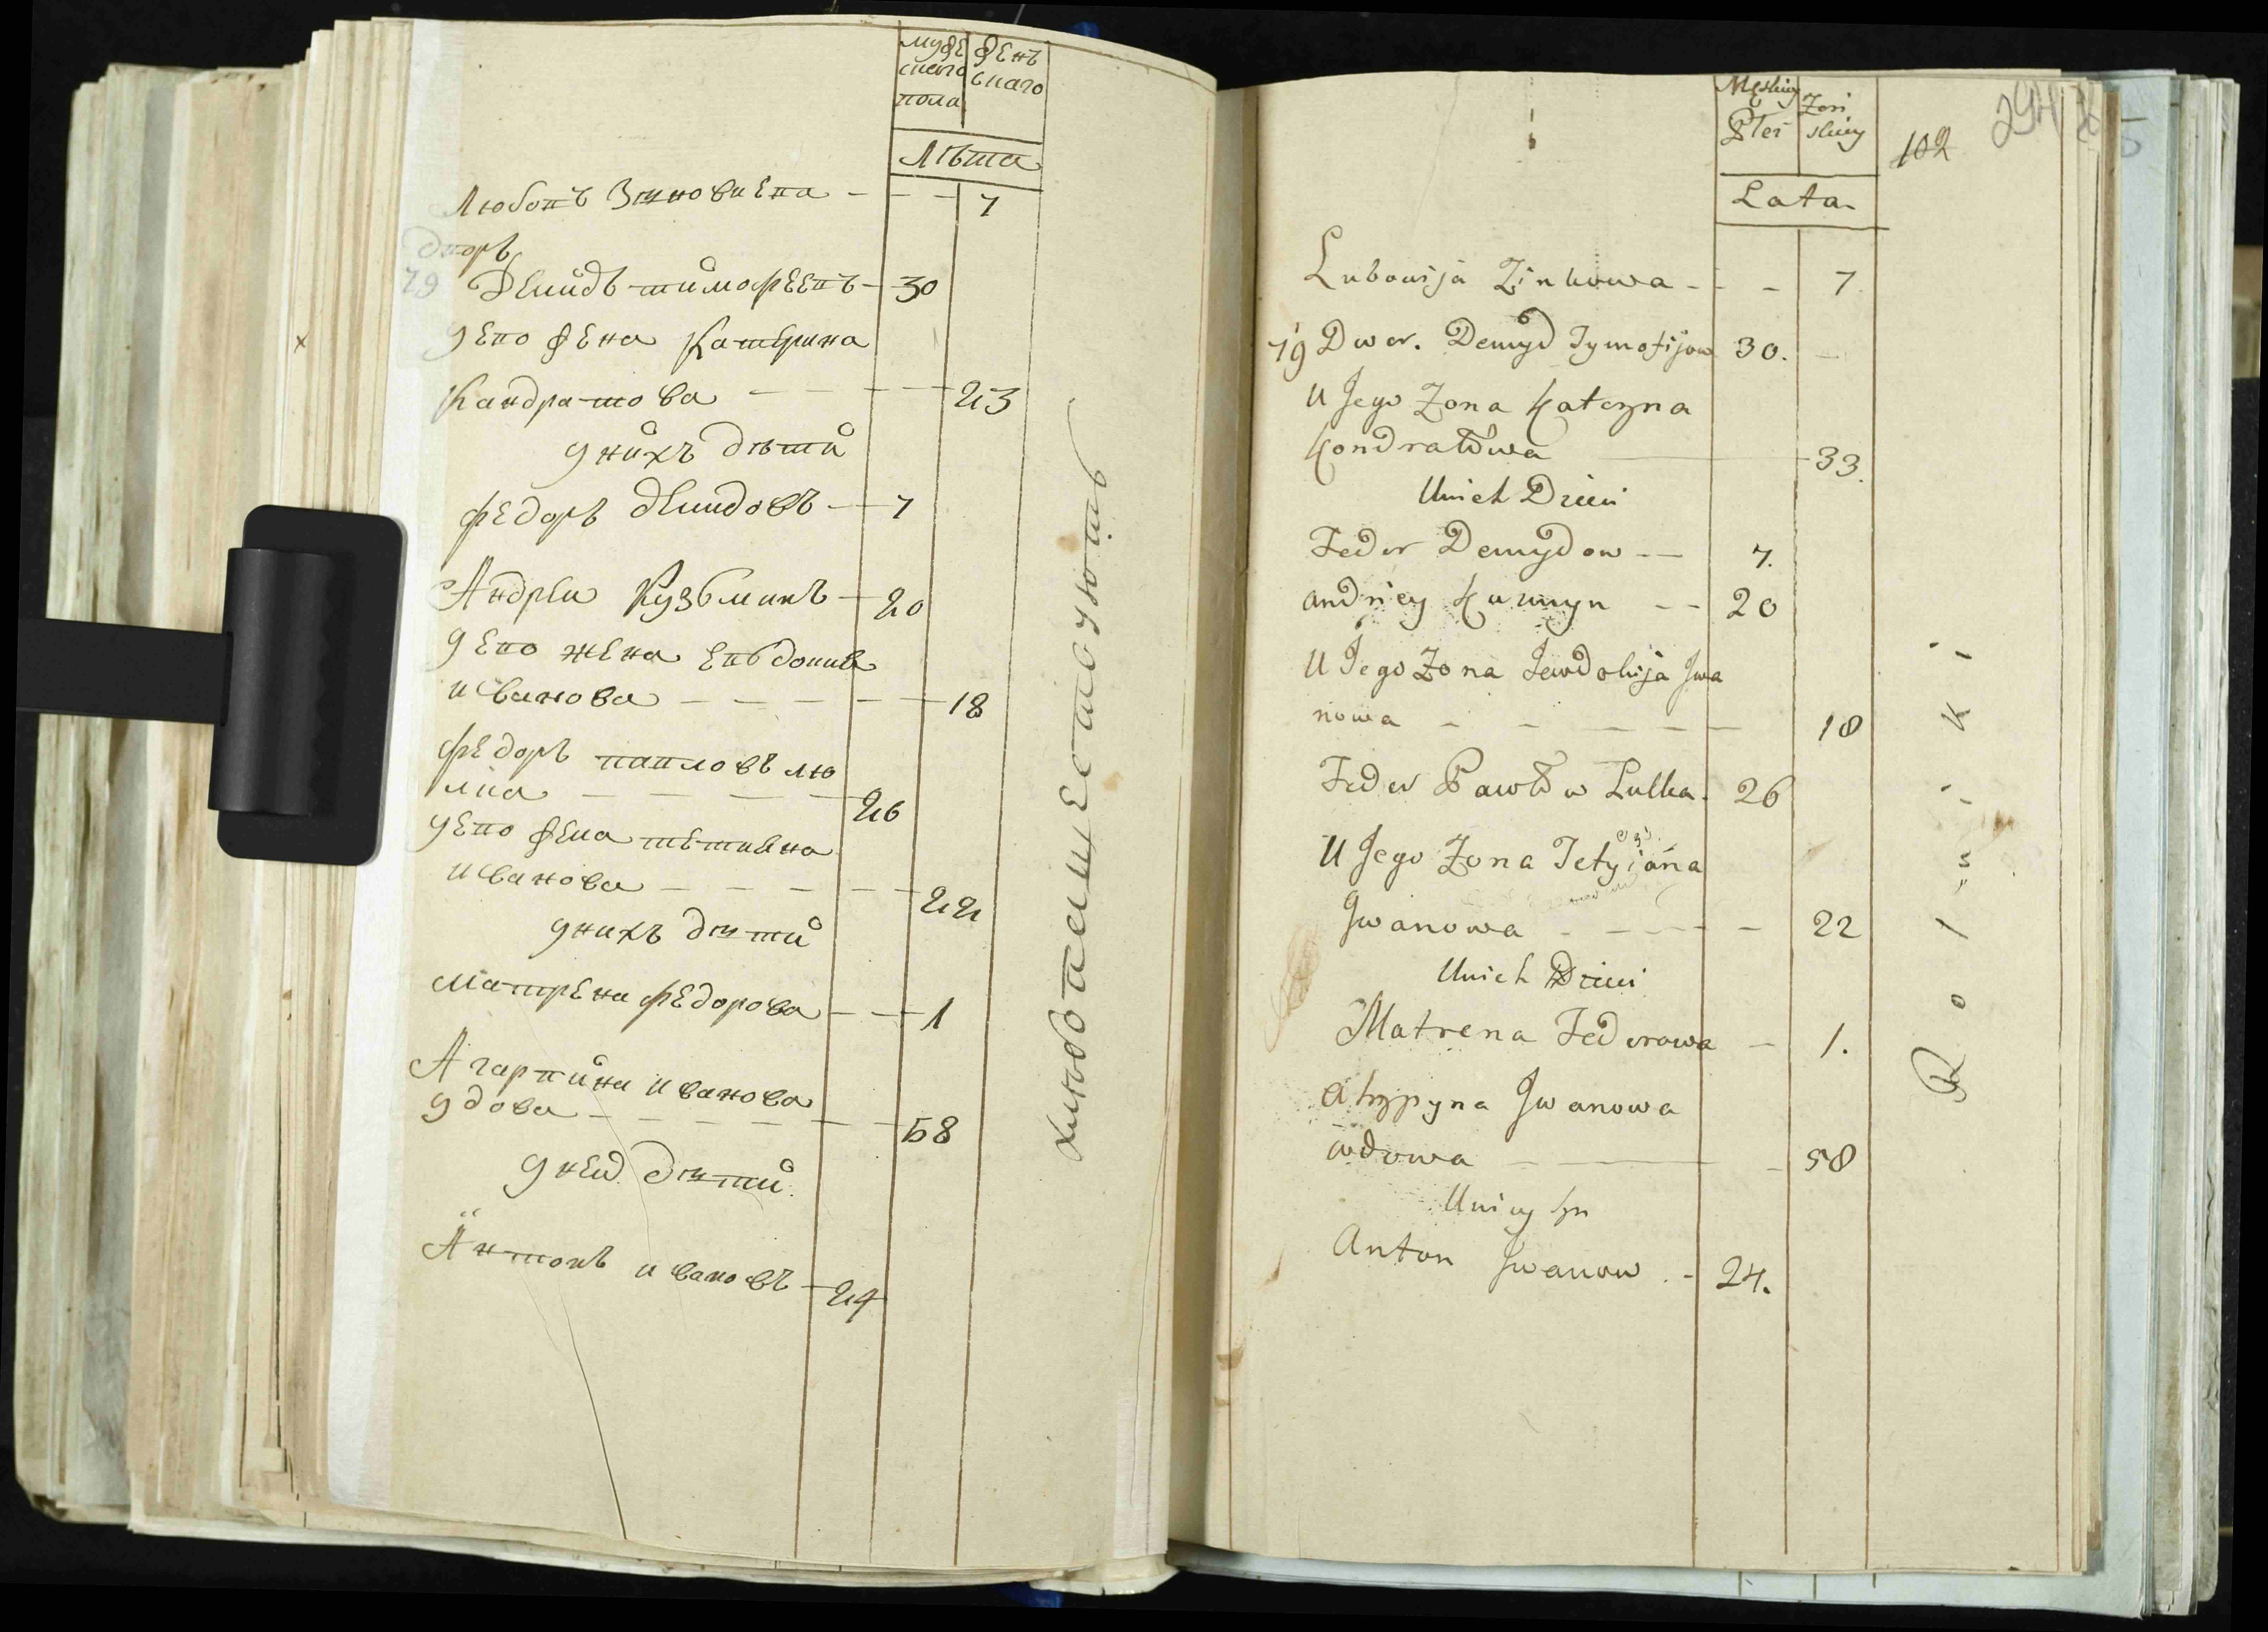 муже
скаго
пола
жень
скаго
лѣта
Любовъ Зиновиева - - - 7
дворъ
79 Демидъ тимофеевъ - 30
у его жена Катерина
Кандратова - - - - 23
у нихъ дѣти
федоръ демидовъ - 7
Андреи Кузьминъ - 20
у его жена Евьдокия
иванова - - - - - 18
федоръ павловъ лю
лка - - - - 26
у его жена тетияна
иванова - - - - - 22
у нихъ дѣти
матрена федорова - - 1
Агарпина иванова
удова - - - - - - 58
у неи дѣти
Антонъ ивановъ - 24
хлебопашествуютъ
Męskiey
Płci
Zen
skiey
102
294
Lata
Lubowija Zinkowa - - - 7
79 Dwor. Demyd Tymofijow 30. -
U Jego Zona Katczna
Kondratowa - 33.
Unich Dzieci
Fedor Demydow - - 7.
Andriey Kuzmyn - - 20
U Jego Zona Jewdokija Jwa
nowa - - - - - 18
Fedor Pawłow Lulka - 26
U Jego Zona Tetyiana
Jwanowa - - - - - 22
Unich Dzieci
Matrena Fedorowa - 1.
Ahrypyna Jwanowa
wdowa - - - 58
Uniey Syn
Anton Jwanow - 24.
Rolniki